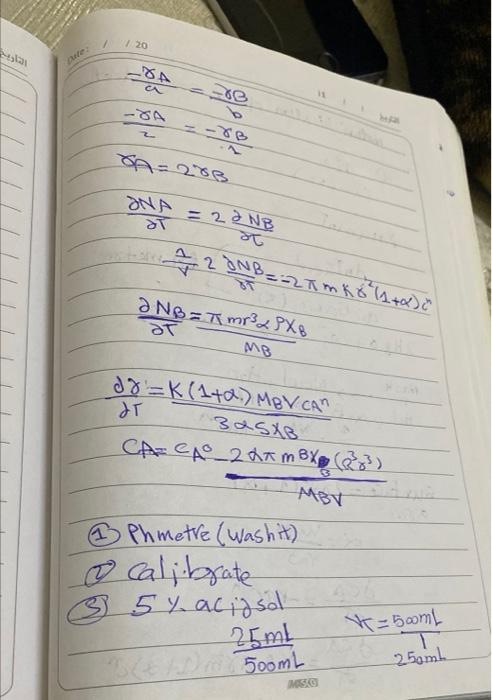 Date: / / 20
-rA/a = -rB/b
-rA/2 = -rB/1
rA = 2rB
∂NA/∂T = 2 ∂NB/∂T
1/V 2 ∂NB/∂T = -2πmKr²(1+α)Cⁿ
∂NB/∂T = πmr³αρXB/MB
dr/∂T = K(1+α)MBV CAⁿ/3αSXB
CA = CA° - 2απmBXB(r³r³)/MBV
① Phmetre (washit)
② calibrate
③ 5% acid sol
25ml/500mL
K = 500mL/250mL
MISKO